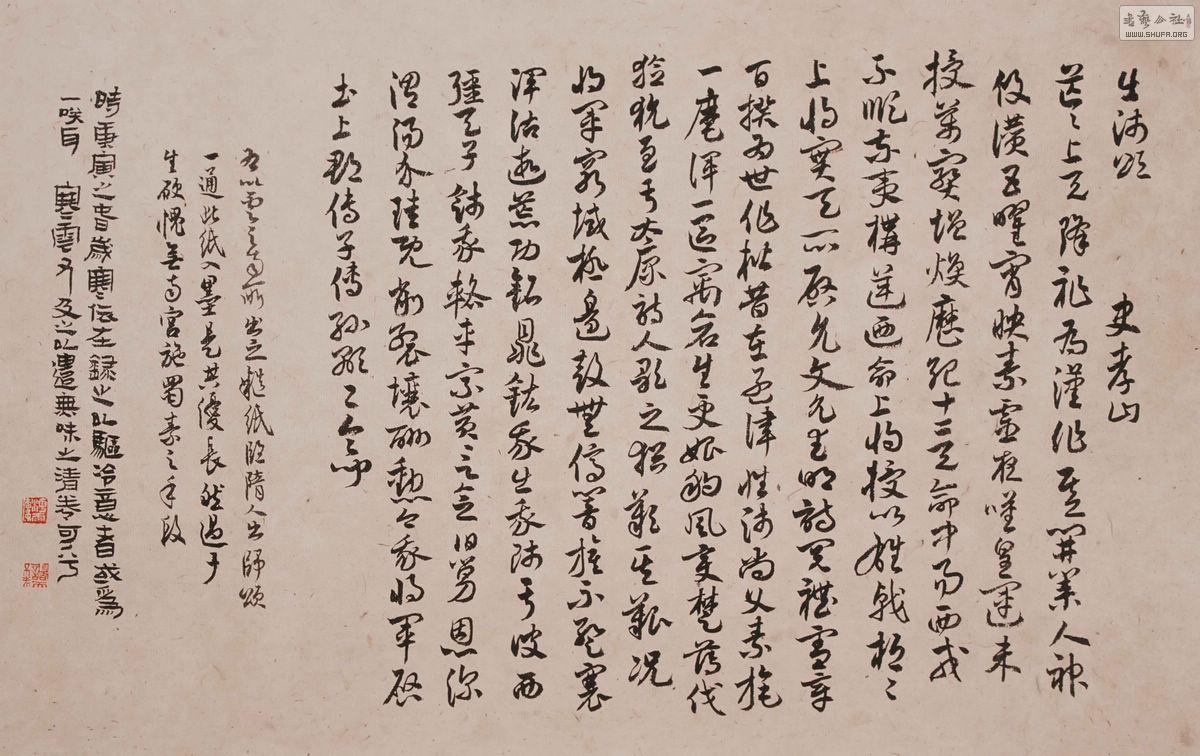 出師頌 史孝山
茫〻上天降祚為漢作基開業人神
攸讚五曜宵映素靈夜嘆皇運未
授萬寶增煥歷紀十二天命中易西戎
不順東夷構逆迺命上將授以雄戟桓〻
上將實天所啟允文允武明詩閱禮憲章
百揆為世作楷昔在孟津惟師尚父素旄
一麾渾一區寓蒼生更始朔風變楚薄伐
獫狁至于太原詩人歌之猶歎其艱況
將軍窮域極邊鼓無停響旗不蹔褰
澤沾遐荒功銘鼎鉉我出我師于彼西
疆天子餞我輅車乘黃言念舊舅恩深
渭陽介珪既削裂壤酬勳今我將軍啟
土上郡傳子傳孫顯〻令問
以雲之南所出之紙臨隋人出師頌
一通此紙入墨是其優長然過于
生硬愧無南宮施蜀素之手段
時庚寅之春歲寒依在錄之以驅冷意者或為
一唉耳 寒雲又及之以遣無味之清
書藝公社
WWW.SHUFA.ORG